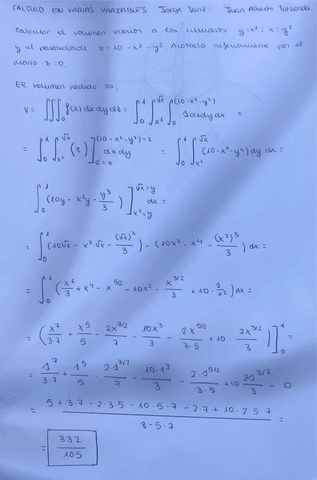 CALCULO EN VARIAS VARIABLES Jorge Sanz Juan Alberto Taboada
Calcular el volumen interior a los cilindros y=x²; x=y²
y al paraboloide z=10-x²-y² inferiormente por el
plano z=0.
El volumen pedido es:
V = ∭ f(x) dx dy dz = ∫₀¹ ∫_{x²}^{√x} ∫₀^{(10-x²-y²)} 1 dz dy dx =
= ∫₀¹ ∫_{x²}^{√x} (z) ]_{0=z}^{(10-x²-y²)=z} dx dy = ∫₀¹ ∫_{x²}^{√x} (10-x²-y²) dy dx =
∫₀¹ (10y - x²y - y³/3) ]_{x²=y}^{√x=y} dx =
= ∫₀¹ (10√x - x²·√x - (√x)³/3) - (10x² - x⁴ - (x²)³/3) dx =
= ∫₀¹ (x⁶/3 + x⁴ - x^{5/2} - 10x² - x^{3/2}/3 + 10·) dx =
= (x⁷/3·7 + x⁵/5 - 2x^{7/2}/7 - 10x³/3 - 2x^{5/2}/3·5 + 10· 2x^{3/2}/3) ]₀¹
= 1⁷/3·7 + 1⁵/5 - 2·1^{7/2}/7 - 10·1³/3 - 2·1^{5/2}/3·5 + 10 2·1^{3/2}/3 - 0
= 5 + 3·7 - 2·3·5 - 10·5·7 - 2·7 + 10·2·5·7 / 3·5·7 =
= 332/105